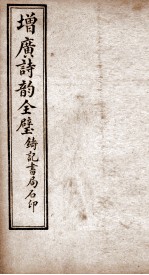 增廣詩韵全璧
鑄記書局石印